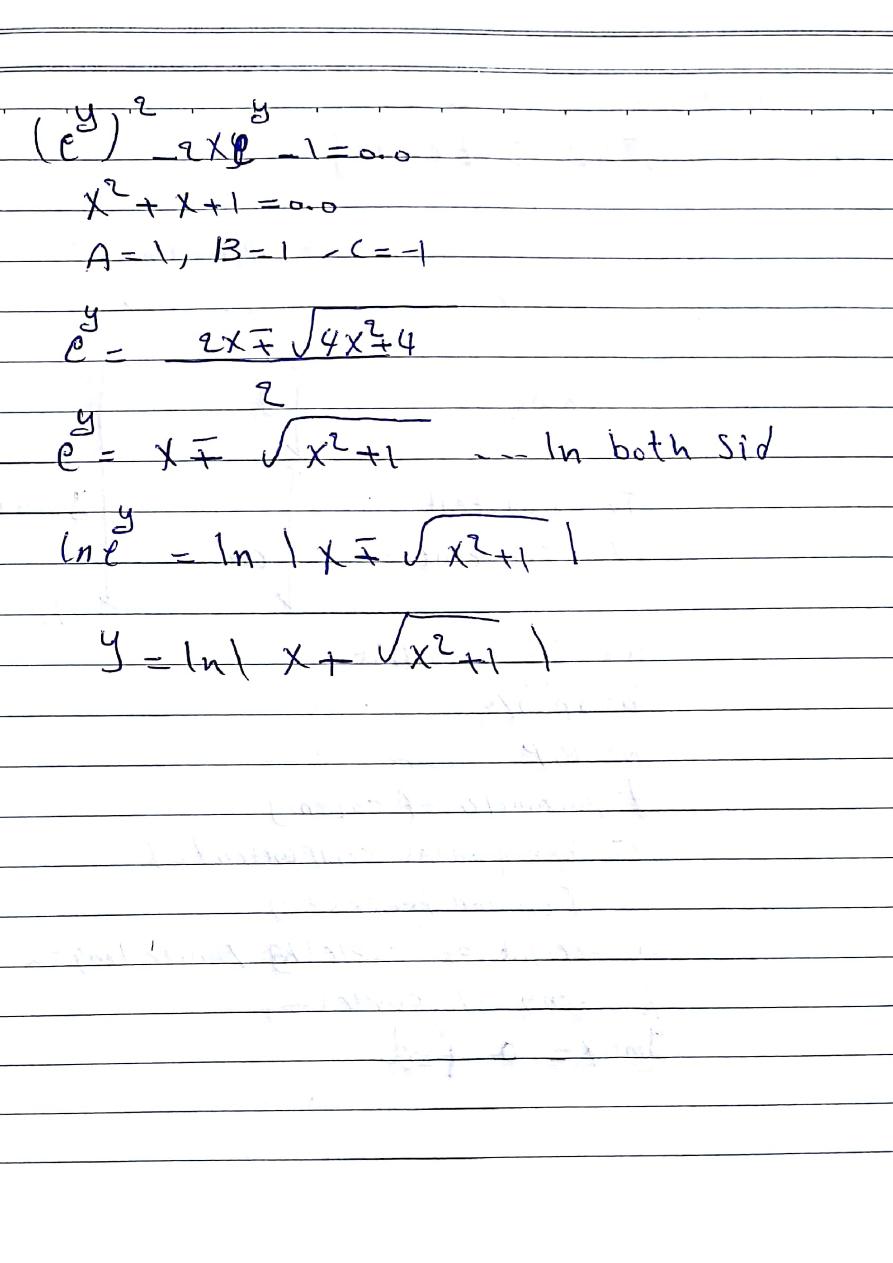 (e^y)^2 - 2xe^y - 1 = 0.0
x^2 + x + 1 = 0.0
A = 1, B = 1, C = -1
e^y = (2x ∓ √(4x^2 + 4)) / 2
e^y = x ∓ √(x^2 + 1) --- ln both sid
ln e^y = ln | x ∓ √(x^2 + 1) |
y = ln | x + √(x^2 + 1) |